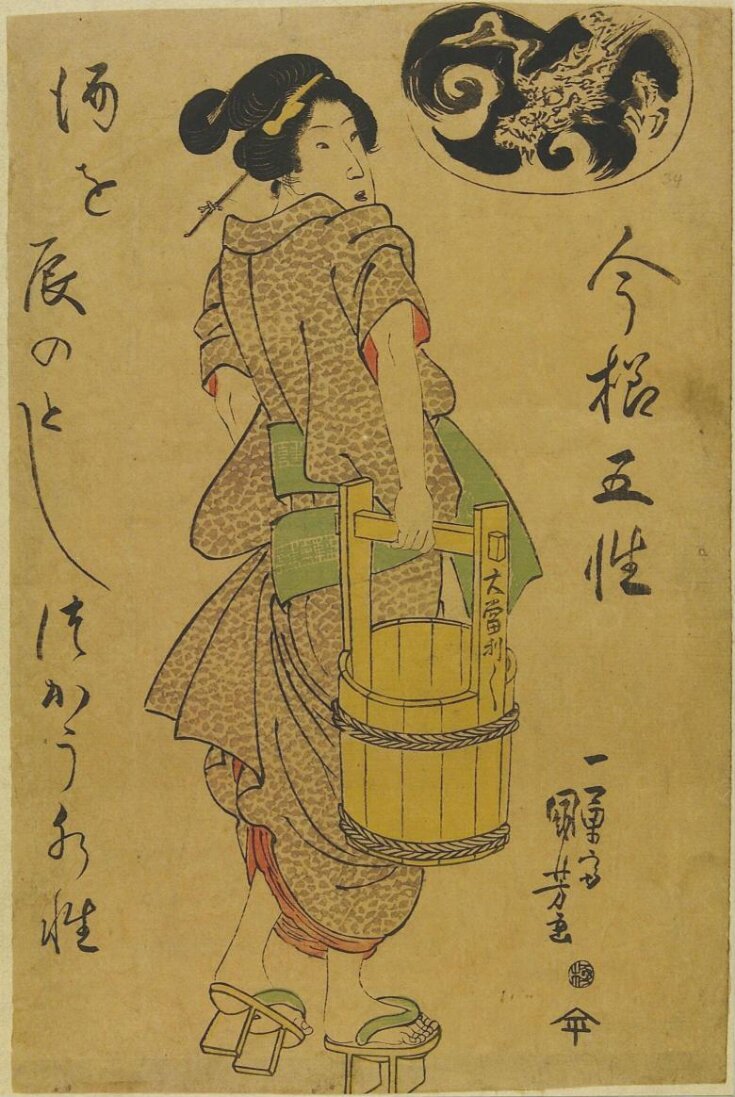 今様五性
酒を辰のとし
かう水性
大當利〱
一勇斎
國芳画
極
34